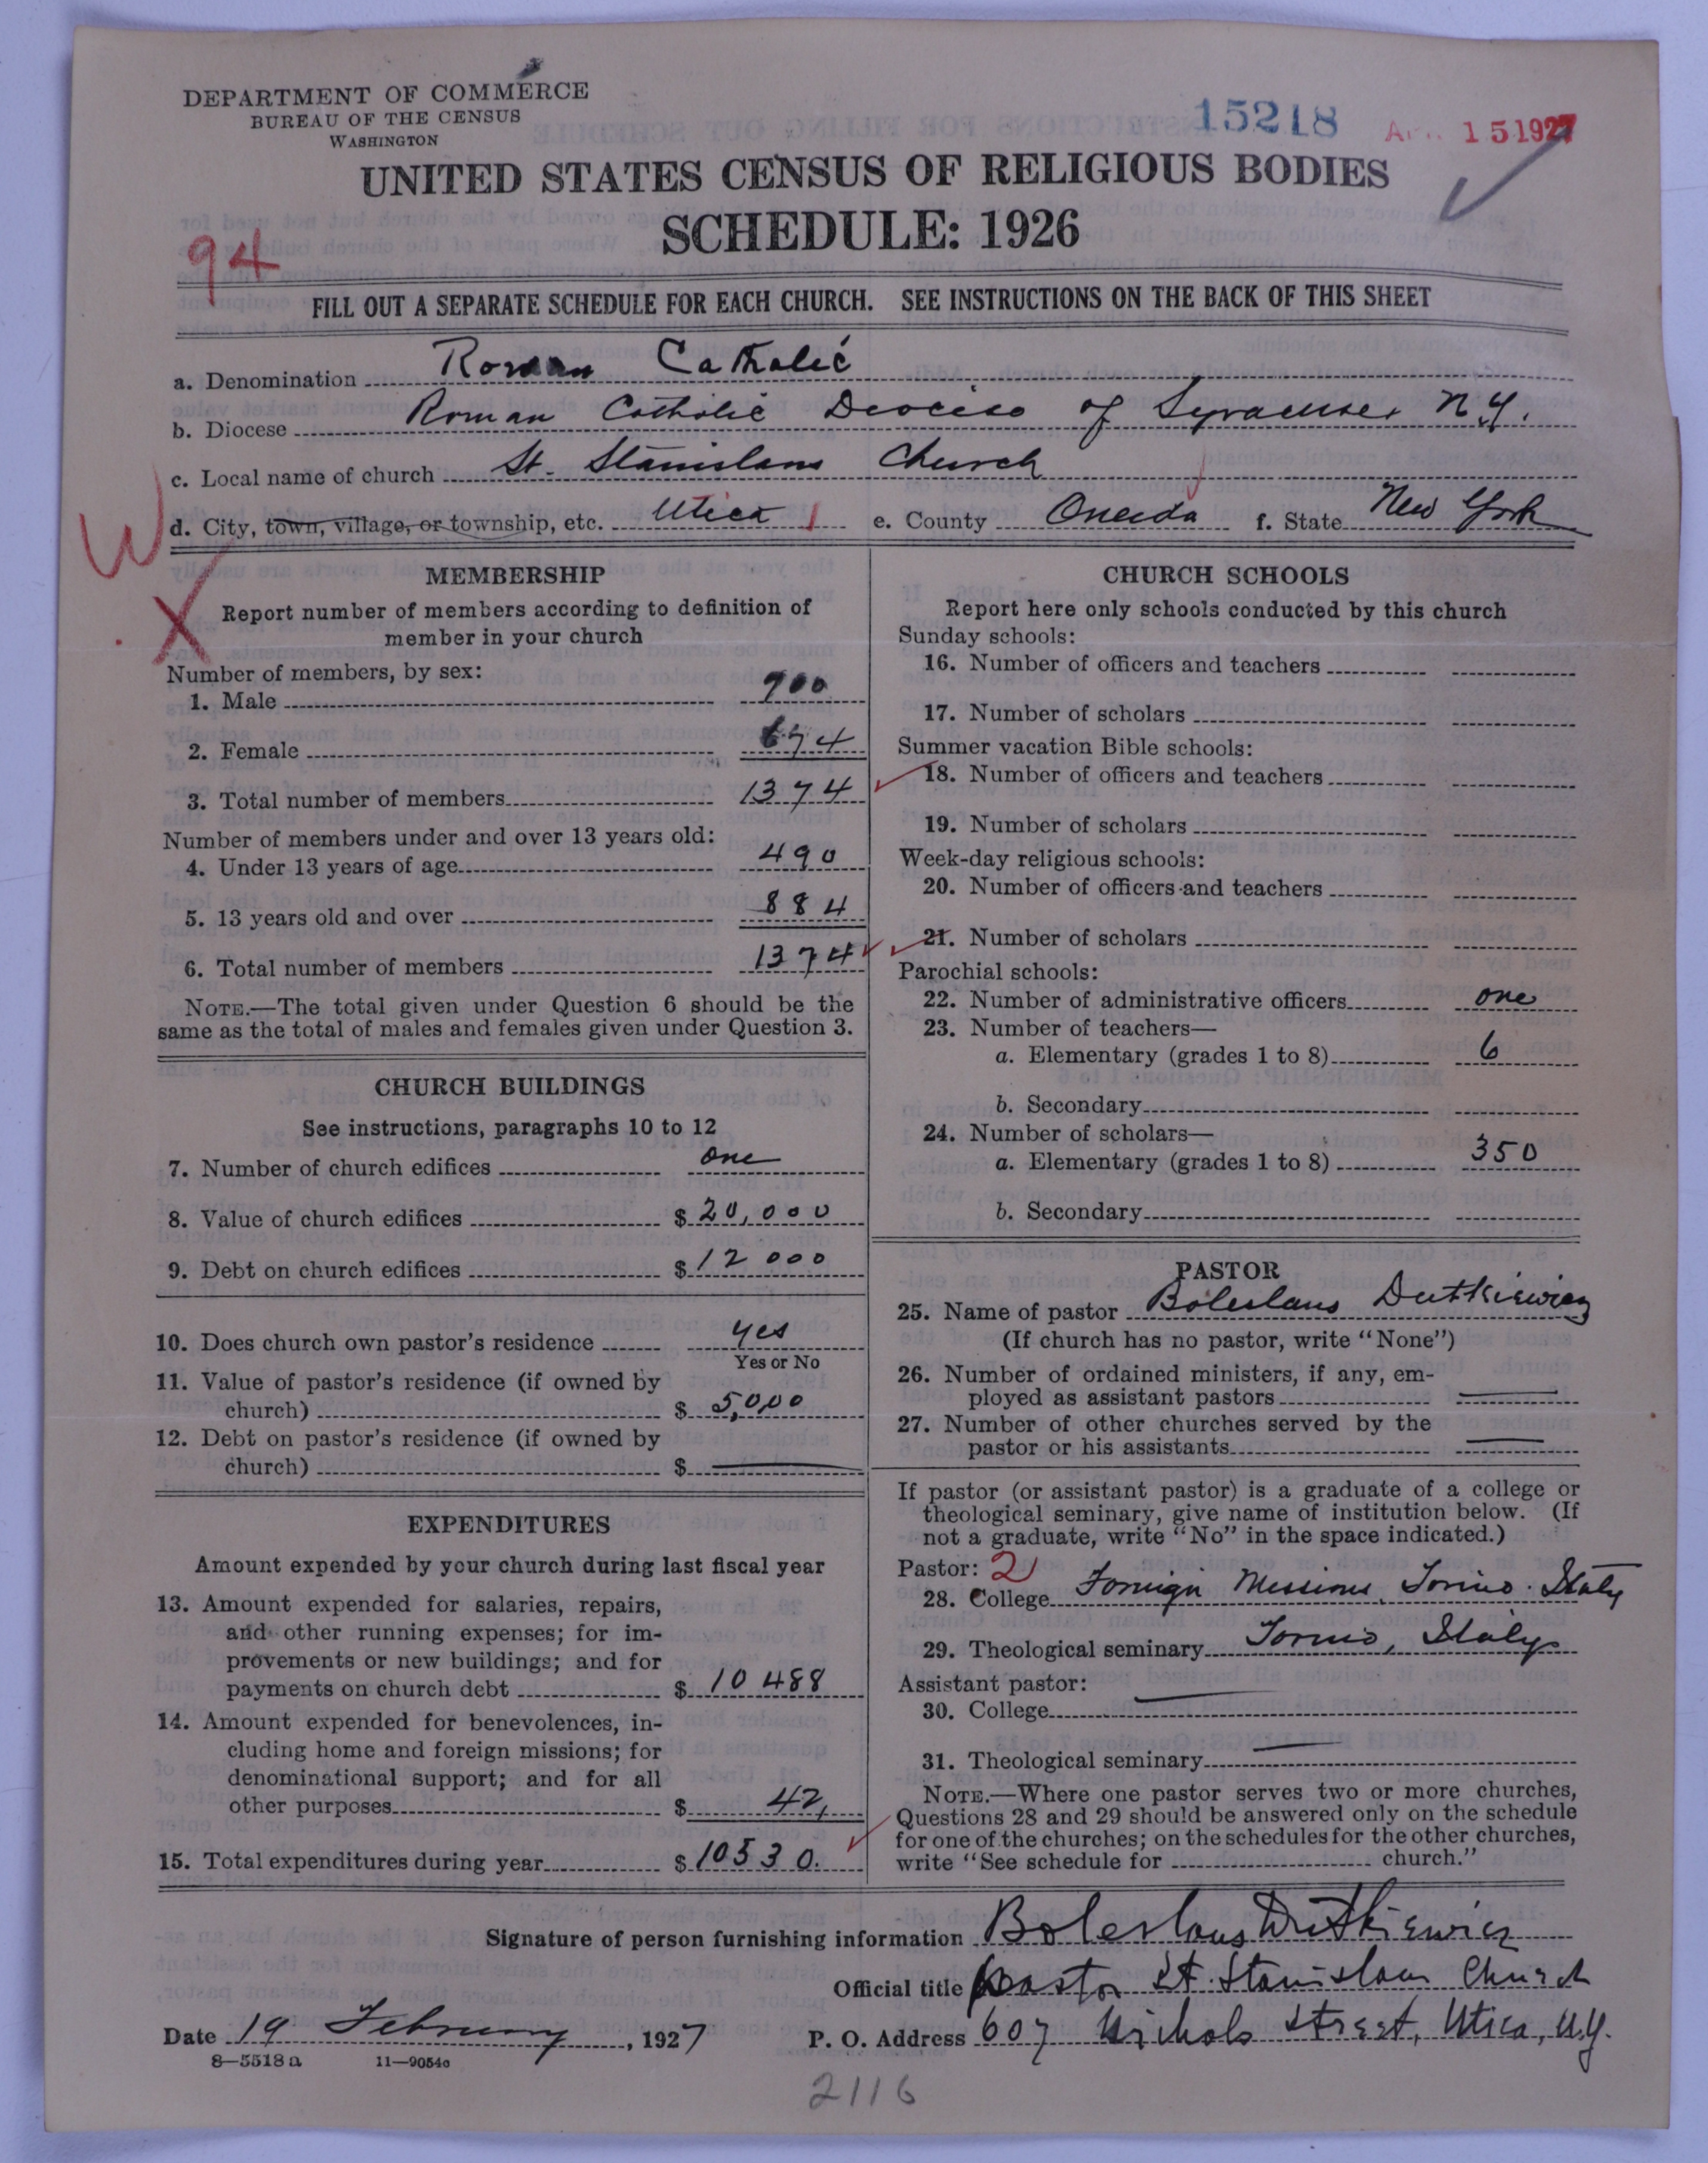 DEPARTMENT OF COMMERCE
BUREAU OF THE CENSUS
WASHINGTON
15218
APR 15 1927
UNITED STATES CENSUS OF RELIGIOUS BODIES
SCHEDULE: 1926
94
FILL OUT A SEPARATE SCHEDULE FOR EACH CHURCH. SEE INSTRUCTIONS ON THE BACK OF THIS SHEET
a. Denomination Roman Catholic
b. Diocese Roman Catholic Diocese of Syracuse, N.Y.
c. Local name of church St. Stanislaus Church
d. City, town, village, or township, etc. Utica e. County Oneida f. State New York
W
X
MEMBERSHIP
Report number of members according to definition of
member in your church
Number of members, by sex:
1. Male 700
2. Female 674
3. Total number of members 1374
Number of members under and over 13 years old:
4. Under 13 years of age 490
5. 13 years old and over 884
6. Total number of members 1374
NOTE.—The total given under Question 6 should be the
same as the total of males and females given under Question 3.
CHURCH BUILDINGS
See instructions, paragraphs 10 to 12
7. Number of church edifices one
8. Value of church edifices $ 20,000
9. Debt on church edifices $ 12 000
10. Does church own pastor's residence yes
Yes or No
11. Value of pastor's residence (if owned by
church) $ 5,000
12. Debt on pastor's residence (if owned by
church) $
EXPENDITURES
Amount expended by your church during last fiscal year
13. Amount expended for salaries, repairs,
and other running expenses; for im-
provements or new buildings; and for
payments on church debt $ 10 488
14. Amount expended for benevolences, in-
cluding home and foreign missions; for
denominational support; and for all
other purposes $ 42,
15. Total expenditures during year $ 10530.
CHURCH SCHOOLS
Report here only schools conducted by this church
Sunday schools:
16. Number of officers and teachers
17. Number of scholars
Summer vacation Bible schools:
18. Number of officers and teachers
19. Number of scholars
Week-day religious schools:
20. Number of officers and teachers
21. Number of scholars
Parochial schools:
22. Number of administrative officers one
23. Number of teachers—
a. Elementary (grades 1 to 8) 6
b. Secondary
24. Number of scholars—
a. Elementary (grades 1 to 8) 350
b. Secondary
PASTOR
25. Name of pastor Boleslaus Dutkiewicz
(If church has no pastor, write "None")
26. Number of ordained ministers, if any, em-
ployed as assistant pastors
27. Number of other churches served by the
pastor or his assistants
If pastor (or assistant pastor) is a graduate of a college or
theological seminary, give name of institution below. (If
not a graduate, write "No" in the space indicated.)
Pastor: 2
28. College Foreign Missions, Torino. Italy
29. Theological seminary Torino, Italy
Assistant pastor:
30. College
31. Theological seminary
NOTE.—Where one pastor serves two or more churches,
Questions 28 and 29 should be answered only on the schedule
for one of the churches; on the schedules for the other churches,
write "See schedule for church."
Signature of person furnishing information Boleslaus Dutkiewicz
Official title Pastor St. Stanislaus Church
Date 19 February, 1927 P. O. Address 607 Nichols Street, Utica, N.Y.
8—5518a 11—9054c
2116